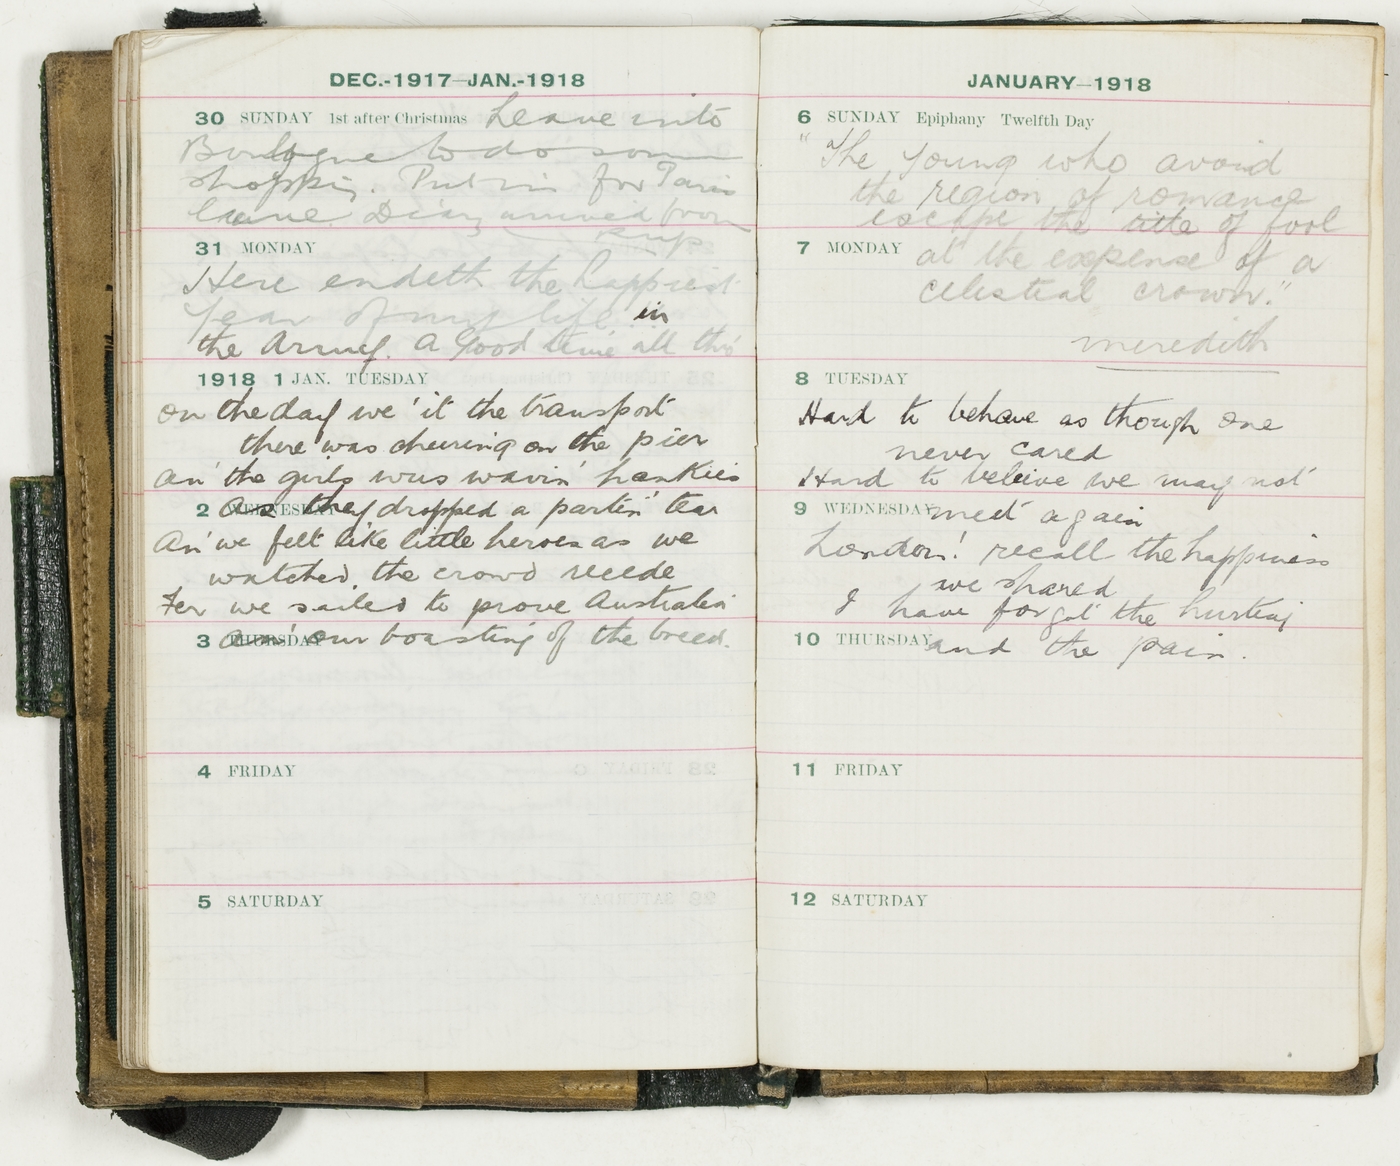 DEC.-1917—JAN.-1918
30 SUNDAY 1st after Christmas Leave into
Boulogne to do some
shopping. Put in for Paris
leave. Diary arrived from
31 MONDAY
Here endeth the happiest
year of my life in
the Army. A Good time all this
1918 1 JAN. TUESDAY
on the day we 'it the transport
there was cheering on the pier
an' the girls wus wavin' hankies
2 WEDNESDAY as they dropped a partin' tear
An' we felt like little heroes as we
watched the crowd recede
Fer we sailed to prove Australia
3 THURSDAY an' our boasting of the breed.
4 FRIDAY
5 SATURDAY
JANUARY—1918
6 SUNDAY Epiphany Twelfth Day
"The young who avoid
the region of romance
escape the title of fool
7 MONDAY at the expense of a
celestial crown."
meredith
8 TUESDAY
Hard to behave as though one
never cared
Hard to beleive we may not
9 WEDNESDAY meet again
London! recall the happiness
we shared
I have forgot the hurting
10 THURSDAY and the pain.
11 FRIDAY
12 SATURDAY